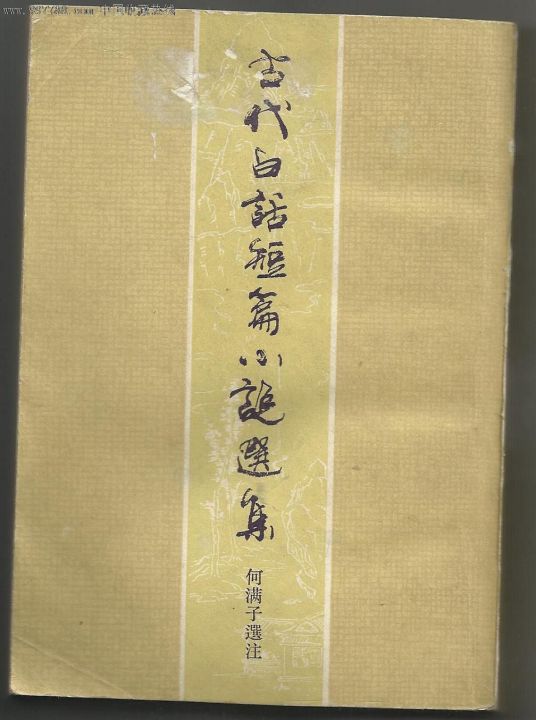 古代白話短篇小說選集
何满子選注